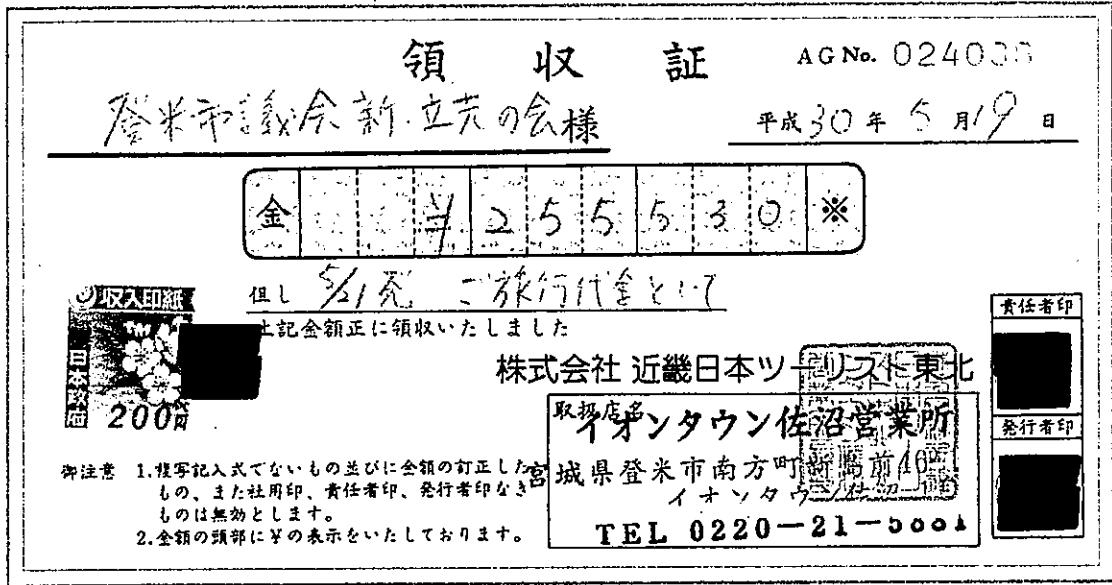 領収証
AG No. 0240
登米市議会 新・立志の会様
平成30年5月19日
金 ¥255530※
但し 5/21発 ご旅行代金として
上記金額正に領収いたしました
収入印紙
日本政府
200円
株式会社 近畿日本ツーリスト東北
取扱店名
イオンタウン佐沼営業所
宮城県登米市南方町新島前46
イオンタウン佐沼
TEL 0220-21-
責任者印
発行者印
御注意 1.複写記入式でないもの並びに金額の訂正した
もの、また社用印、責任者印、発行者印なき
ものは無効とします。
2.金額の頭部に¥の表示をいたしております。